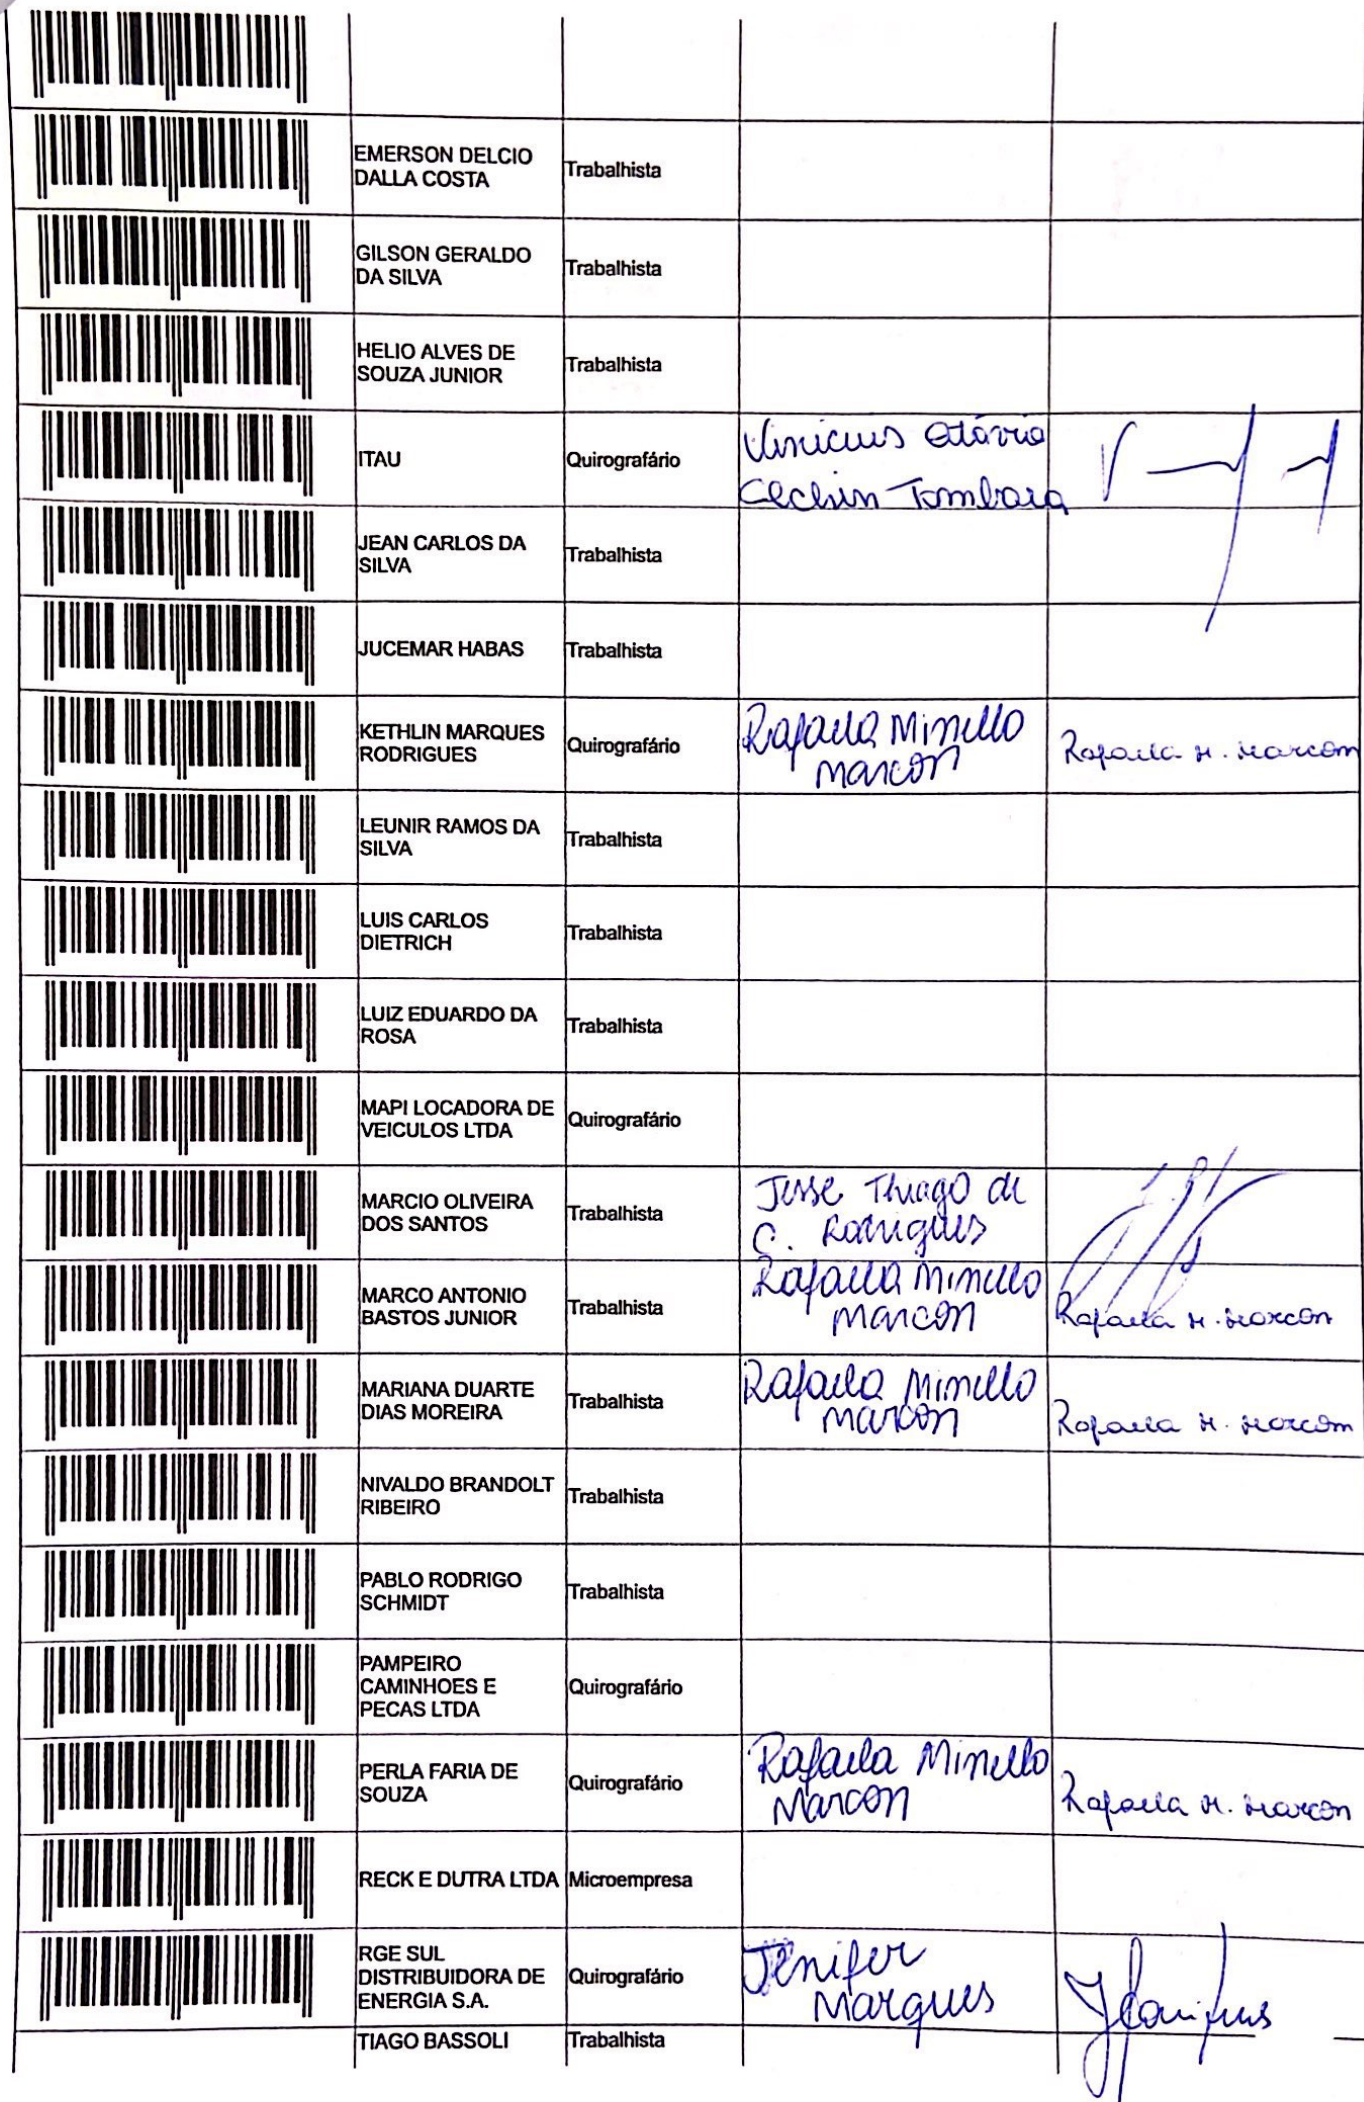 EMERSON DELCIO
DALLA COSTA
Trabalhista
GILSON GERALDO
DA SILVA
Trabalhista
HELIO ALVES DE
SOUZA JUNIOR
Trabalhista
ITAU
Quirografário
Vinicius Otávio
Cechin Tombara
JEAN CARLOS DA
SILVA
Trabalhista
JUCEMAR HABAS
Trabalhista
KETHLIN MARQUES
RODRIGUES
Quirografário
Rafaela Minello
Marcon
Rafaela M. Marcon
LEUNIR RAMOS DA
SILVA
Trabalhista
LUIS CARLOS
DIETRICH
Trabalhista
LUIZ EDUARDO DA
ROSA
Trabalhista
MAPI LOCADORA DE
VEICULOS LTDA
Quirografário
MARCIO OLIVEIRA
DOS SANTOS
Trabalhista
Jesse Thiago de
C. Rodrigues
MARCO ANTONIO
BASTOS JUNIOR
Trabalhista
Rafaela Minello
Marcon
Rafaela M. Marcon
MARIANA DUARTE
DIAS MOREIRA
Trabalhista
Rafaela Minello
Marcon
Rafaela M. Marcon
NIVALDO BRANDOLT
RIBEIRO
Trabalhista
PABLO RODRIGO
SCHMIDT
Trabalhista
PAMPEIRO
CAMINHOES E
PECAS LTDA
Quirografário
PERLA FARIA DE
SOUZA
Quirografário
Rafaela Minello
Marcon
Rafaela M. Marcon
RECK E DUTRA LTDA
Microempresa
RGE SUL
DISTRIBUIDORA DE
ENERGIA S.A.
Quirografário
Jenifer
Marques
TIAGO BASSOLI
Trabalhista